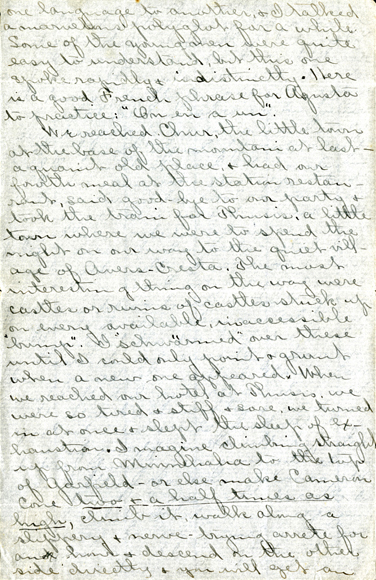 one language to another, & I talked
a marvelous playlot for a while.
Some of the young men were quite
easy to understand, but this one
spoke rapidly & indistinctly. Here
is a good French phrase for Agusta
to practice: "On en a un".
We reached Chur, the little town
at the base of the mountain at last -
a quaint old place, & had our
fourth meal at the station restau-
rant, said good-bye to our party, &
took the train for Thusis, a little
town where we were to spend the
night on our way to the quiet vill-
age of Avers-Cresta. The most
interesting thing on the way were
castles or ruins of castles stuck up
on every available, inaccessible
"bump". I "schwärmed" over these
until I could only point & grunt
when a new one appeared. When
we reached our hotel at Thusis, we
were so tired & stiff & sore, we turned
in at once & slept the sleep of ex-
haustion. Imagine climbing straight
up from Minnehaha to the top
of Garfield - or else make Cameron
Cone two & a half times as
high, climb it, walk along a
slippery & nerve-trying arrete for
an hour & descend on the other
side directly & you will get an